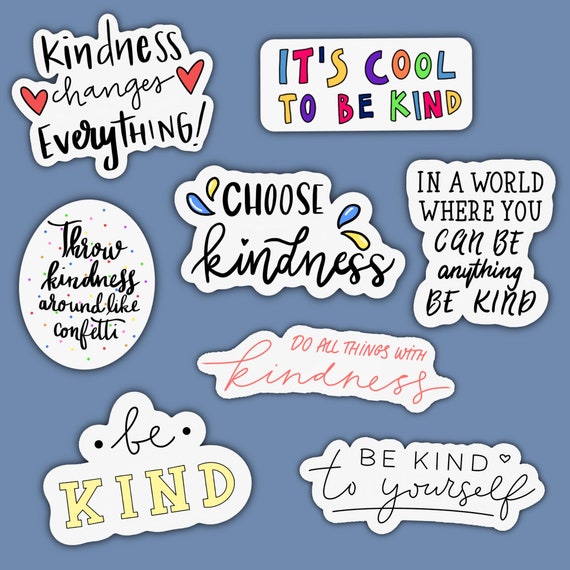 Kindness
changes
EverytHING!
IT'S COOL
TO BE KIND
Throw
kindness
around like
confetti
CHOOSE
kindness
IN A WORLD
WHERE YOU
CAN BE
anything
BE KIND
DO ALL THINGS WITH
kindness
be
KIND
BE KIND
to yourself